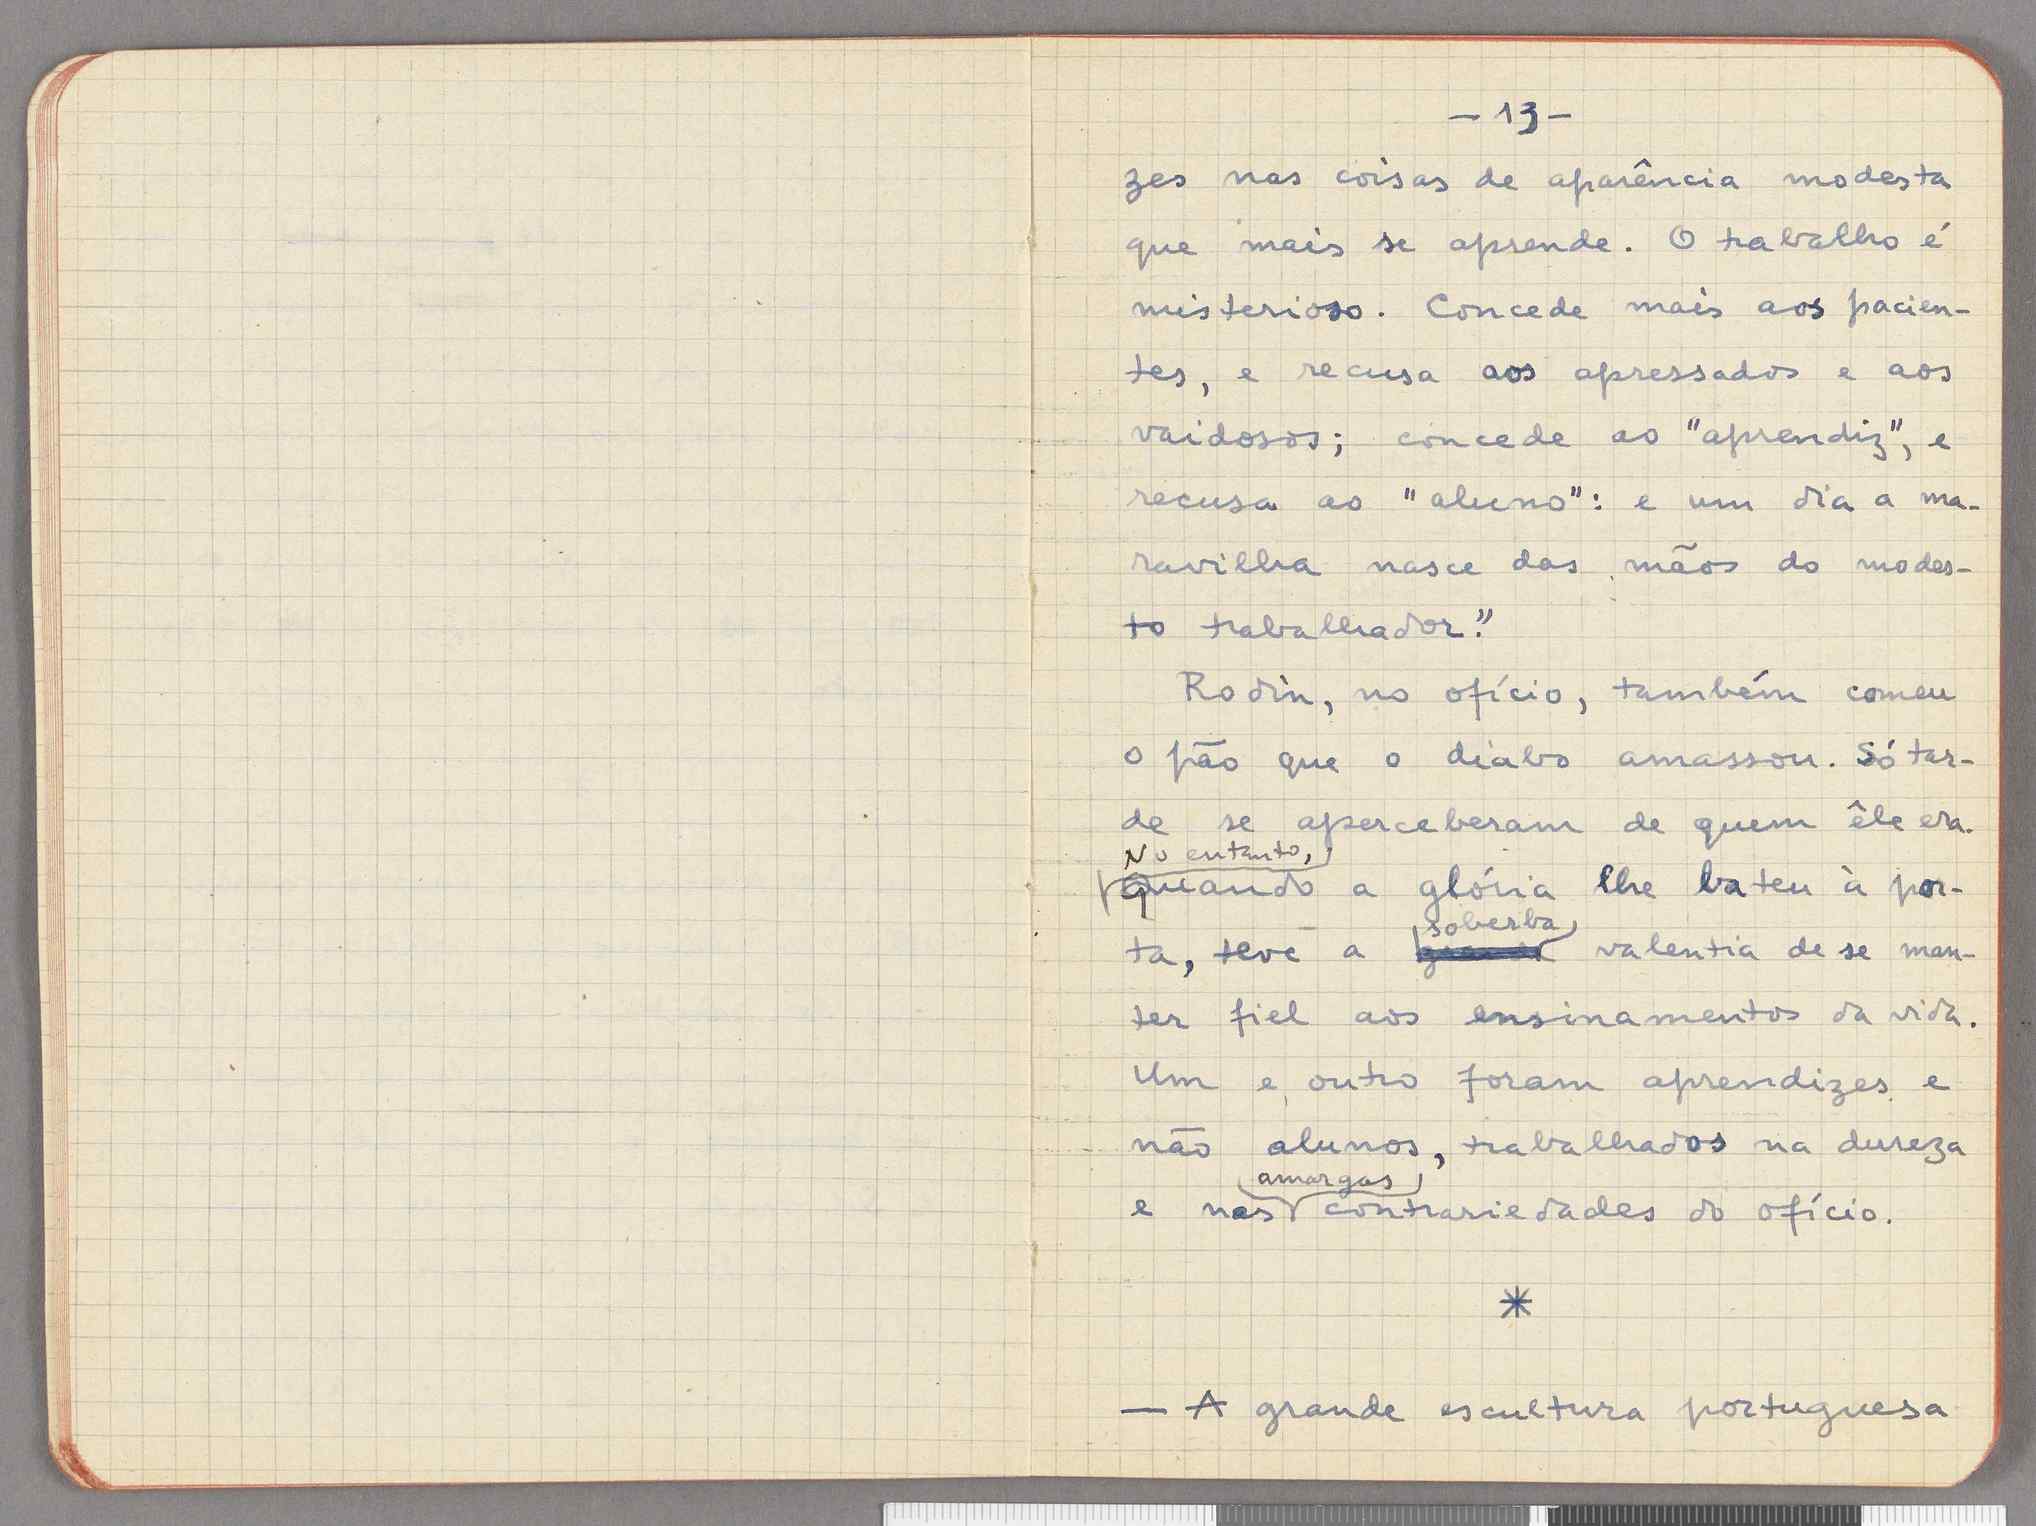 — 13 —
zes nas coisas de aparência modesta
que mais se aprende. O trabalho é
misterioso. Concede mais aos pacien-
tes, e recusa aos apressados e aos
vaidosos; concede ao "aprendiz", e
recusa ao "aluno": e um dia a ma-
ravilha nasce das mãos do modes-
to trabalhador."
Rodin, no ofício, também comeu
o pão que o diabo amassou. Só tar-
de se aperceberam de quem êle era.
No entanto,
quando a glória lhe bateu à por-
soberba
ta, teve a valentia de se man-
ter fiel aos ensinamentos da vida.
Um e outro foram aprendizes e
não alunos, trabalhados na dureza
amargas
e nas contrariedades do ofício.
*
— A grande escultura portuguesa